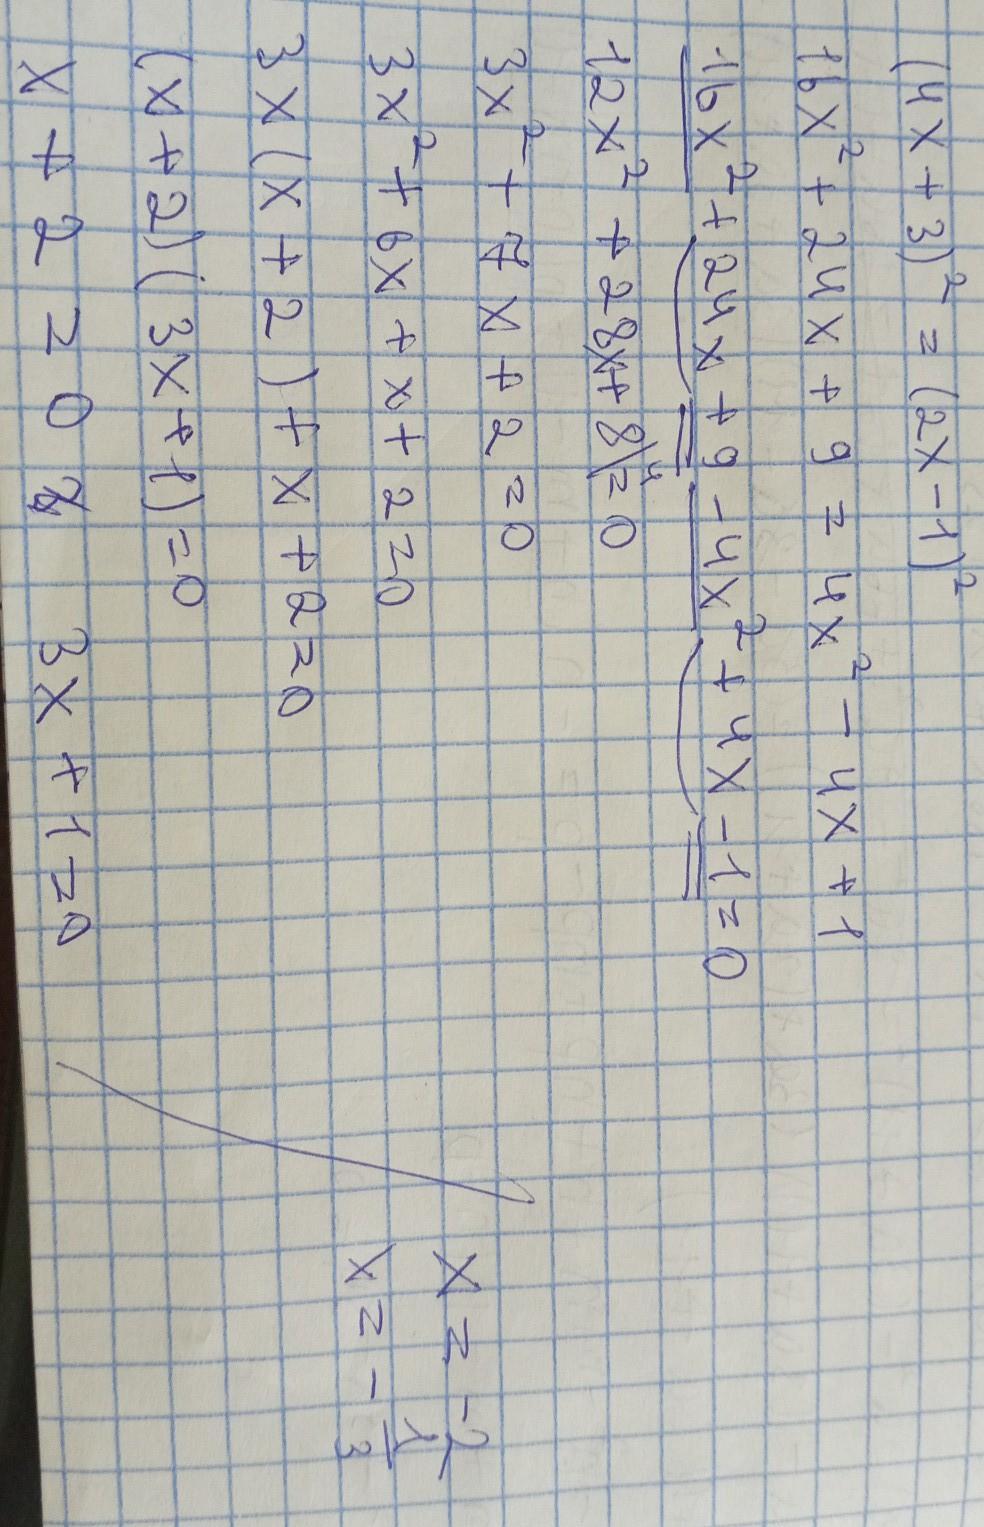 (4x + 3)² = (2x - 1)²
16x² + 24x + 9 = 4x² - 4x + 1
16x² + 24x + 9 - 4x² + 4x - 1 = 0
12x² + 28x + 8 |⁴ = 0
3x² + 7x + 2 = 0
3x² + 6x + x + 2 = 0
3x(x + 2) + x + 2 = 0
(x + 2)(3x + 1) = 0
x + 2 = 0 3x + 1 = 0
x = -2
x = - 1/3